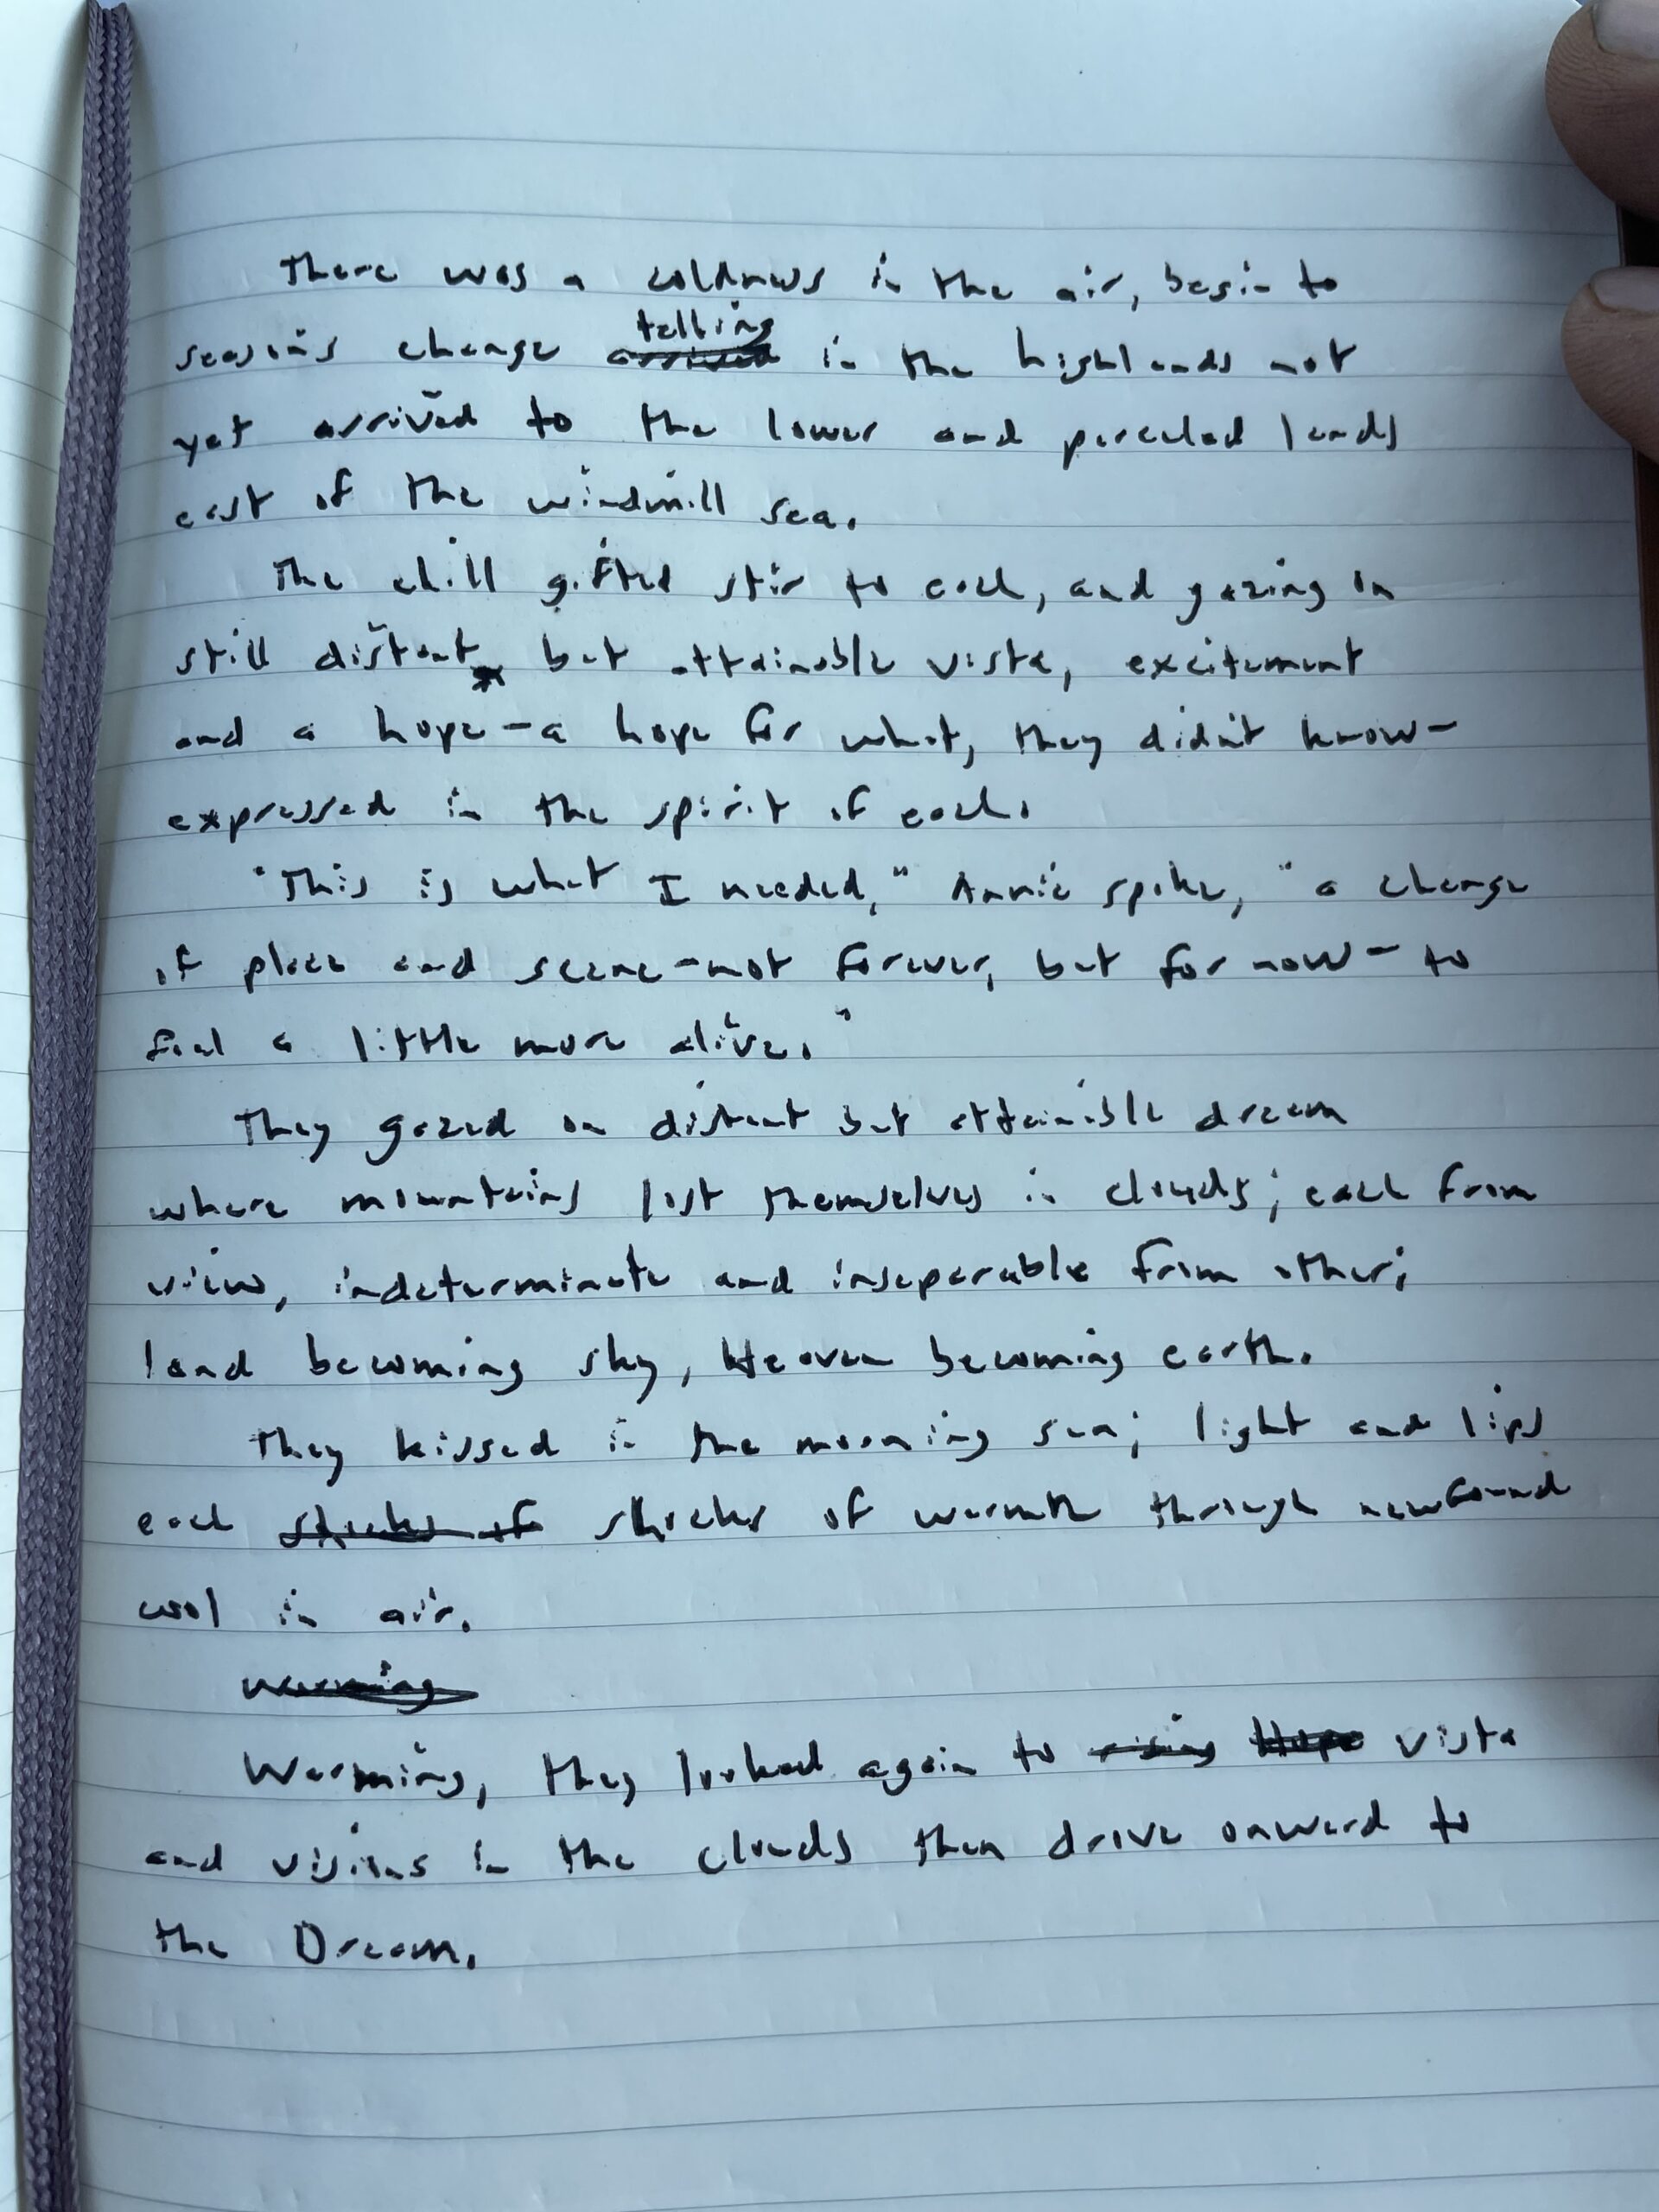 There was a coldness in the air, begin to
seasons change telling in the highlands not
yet arrived to the lower and parceled lands
east of the windmill sea.
The chill gifted stir to each, and gazing on
still distant but attainable vista, excitement
and a hope—a hope for what, they didn't know—
expressed in the spirit of each.
"This is what I needed," Annie spoke, "a change
of place and scene—not forever, but for now—to
feel a little more alive."
They gazed on distant but attainable dream
where mountains lost themselves in clouds; each from
view, indeterminate and inseperable from other;
land becoming sky, Heaven becoming earth.
They kissed in the morning sun; light and lips
each shocks of shocks of warmth through newfound
cool in air.
Warming
Warming, they looked again to rising Hope vista
and visions in the clouds then drive onward to
the Dream.